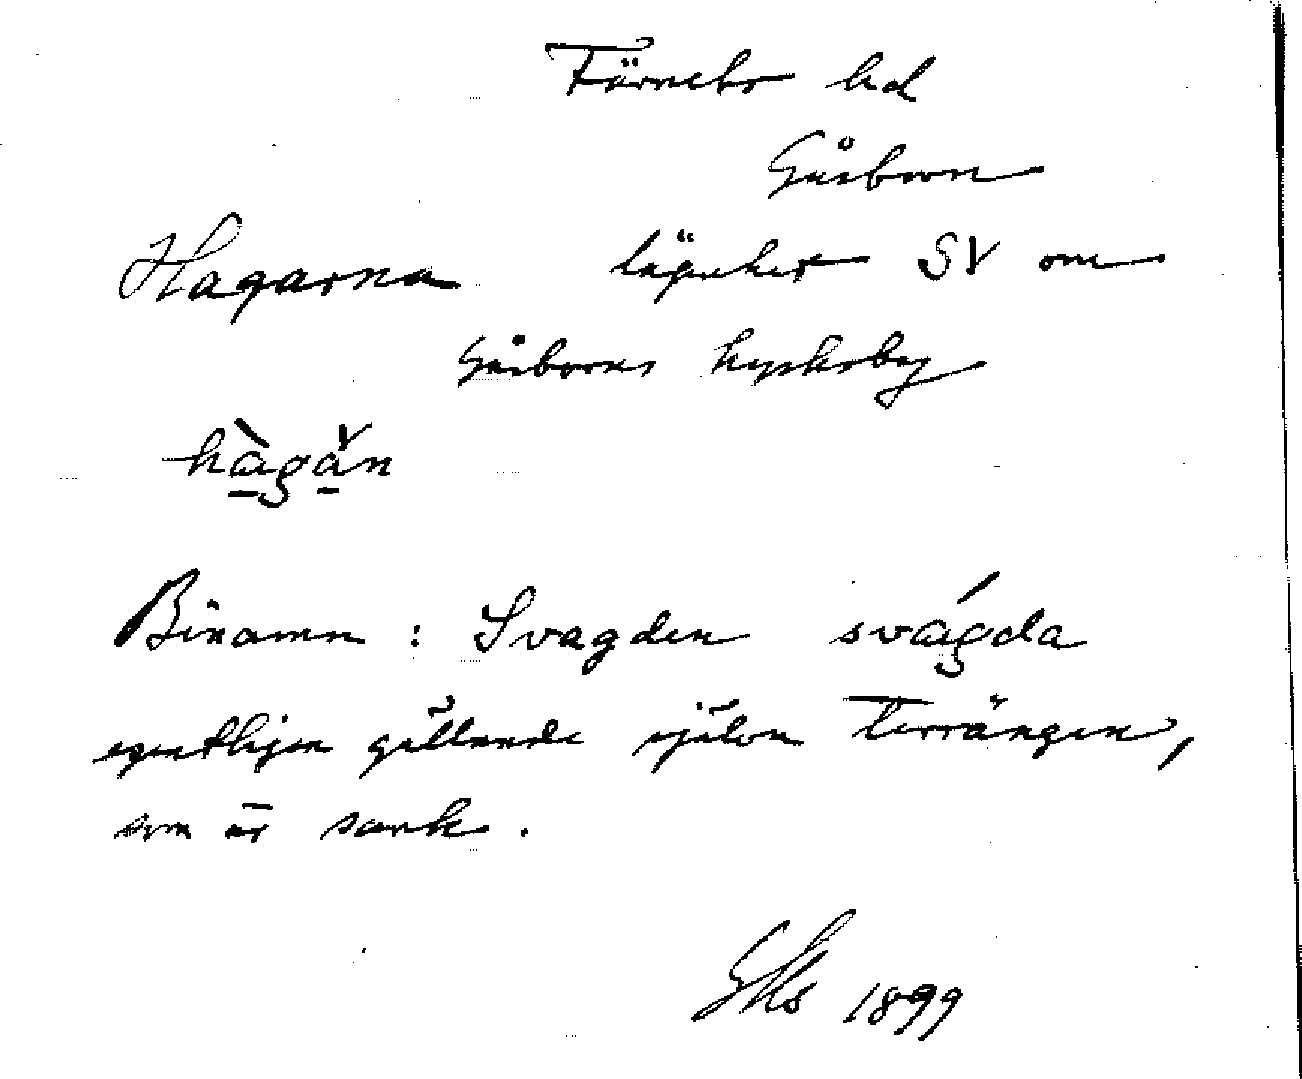 Färnebo hd
Gåsborn
Hagarna lägenhet SV om
Gåsborns kyrkoby
hàgǎn
Binamn : Svagden svágda
egentligen gällande själva terrängen,
som är sank.
1899